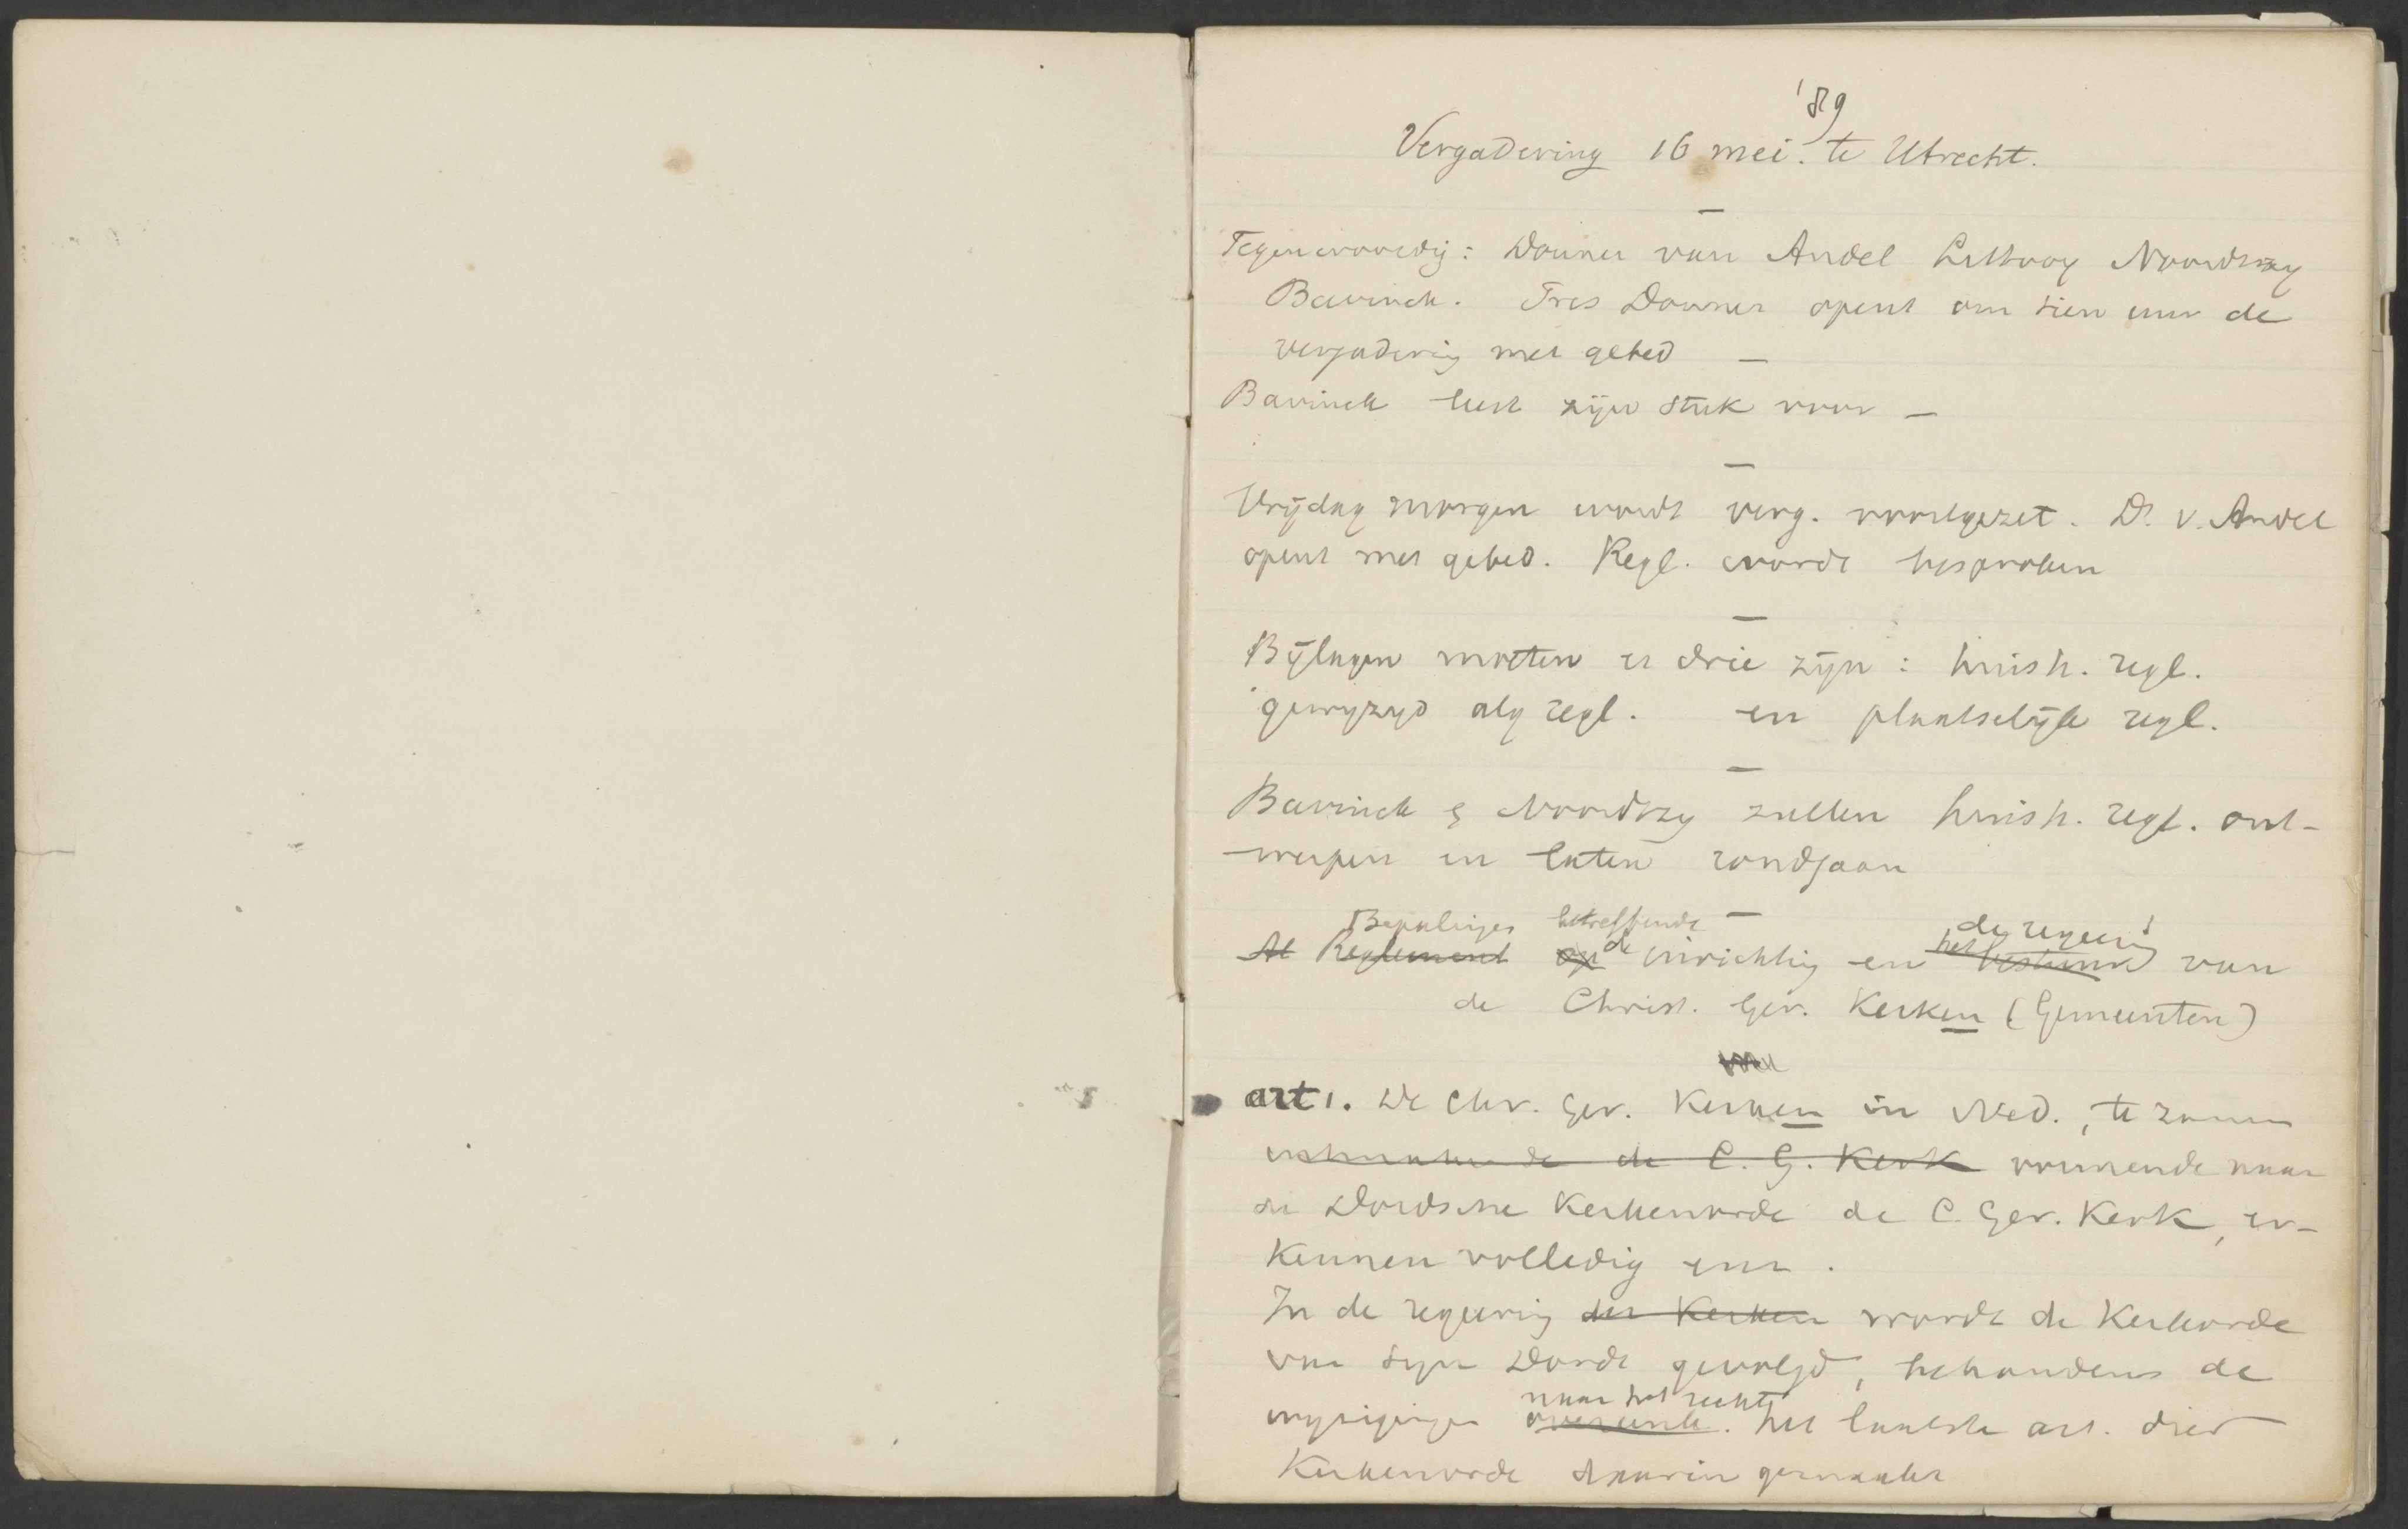 '89
Vergadering 16 mei. te Utrecht.
Tegenwoordig: Donner van Andel Littooy Noordtzy
Bavinck. Pres Donner opent om tien uur de
vergadering met gebed —
Bavinck leest zijn stuk voor —
Vrijdag morgen wordt verg. voortgezet. Ds. v. Andel
opent met gebed. Regl. wordt besproken
Bijlagen moeten er drie zijn: huish. regl.
gewyzigd alg regl. en plaatselijk regl.
Bavinck & Noordtzy zullen huish. regl. ont-
werpen en laten rondgaan
Bepalingen betreffende de regeering
Al Reglement op de inrichting en het bestuur van
de Christ. Ger. Kerken (Gemeenten)
art 1. De Chr. Ger. Kerken in Ned., te zamen
uitmakende de C. G. Kerk vormende naar
de Dordsche Kerkenorde de C. Ger. Kerk, er-
kennen volledig
In de regeering der Kerken wordt de Kerkorde
van Syn Dordt gevolgd, behoudens de
naar het recht
wyzigingen overeenk. het laatste art. dier
Kerkenorde daarin gemaakt